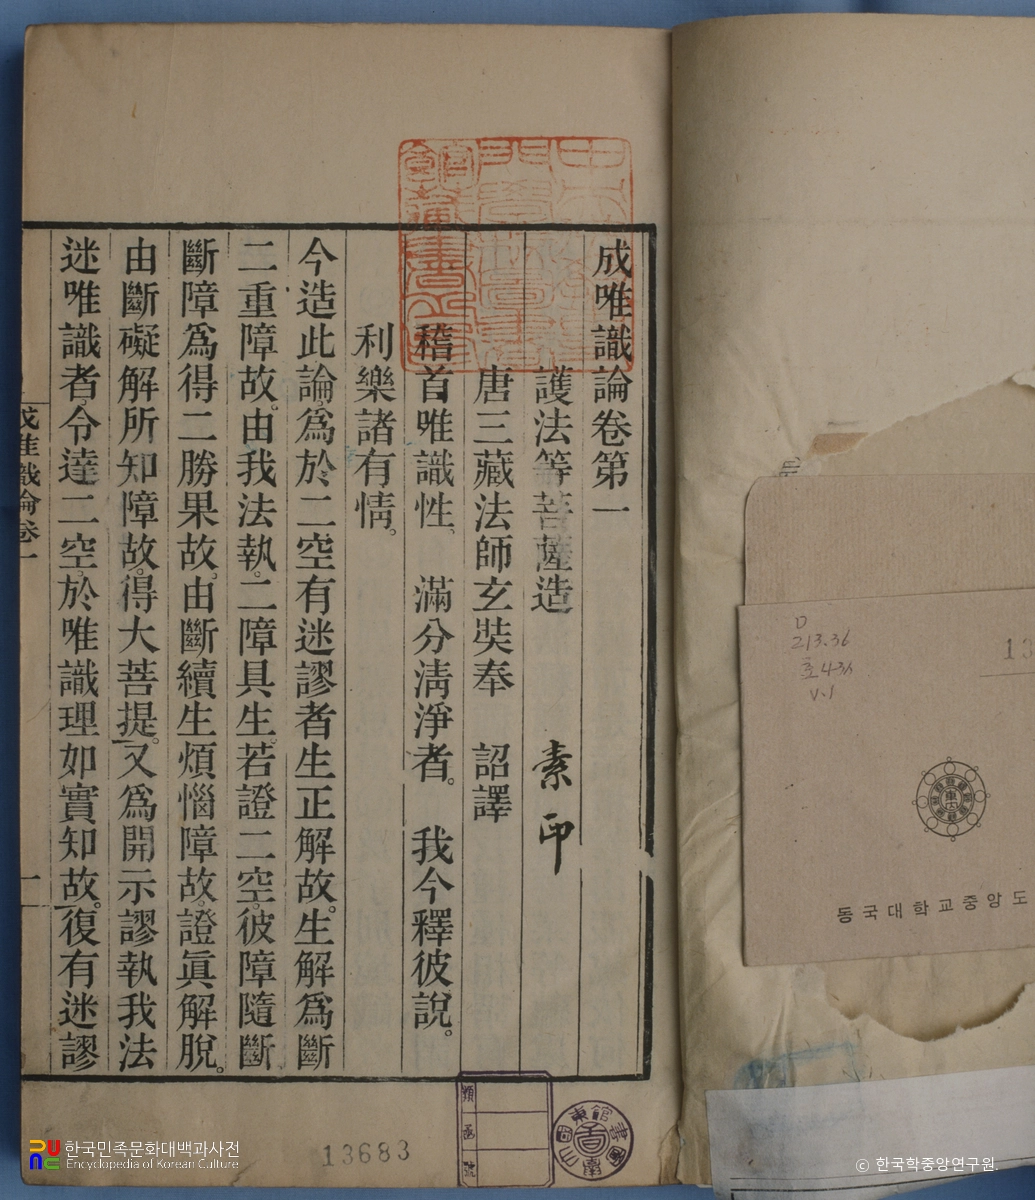 成唯識論卷第一
護法等菩薩造　素印
唐三藏法師玄奘奉　詔譯
稽首唯識性、　滿分淸淨者。　我今釋彼說。
利樂諸有情。
今造此論。爲於二空有迷謬者生正解故。生解爲斷
二重障故。由我法執。二障具生。若證二空。彼障隨斷
斷障爲得二勝果故。由斷續生煩惱障故。證眞解脫。
由斷礙解所知障故。得大菩提。又爲開示謬執我法
迷唯識者。令達二空。於唯識理如實知故。復有迷謬
成唯識論卷一
一
D
213.36
호43ㅅ
V.1
13
동국대학교중앙도
類
函
號
13683
한국민족문화대백과사전
Encyclopedia of Korean Culture
© 한국학중앙연구원.